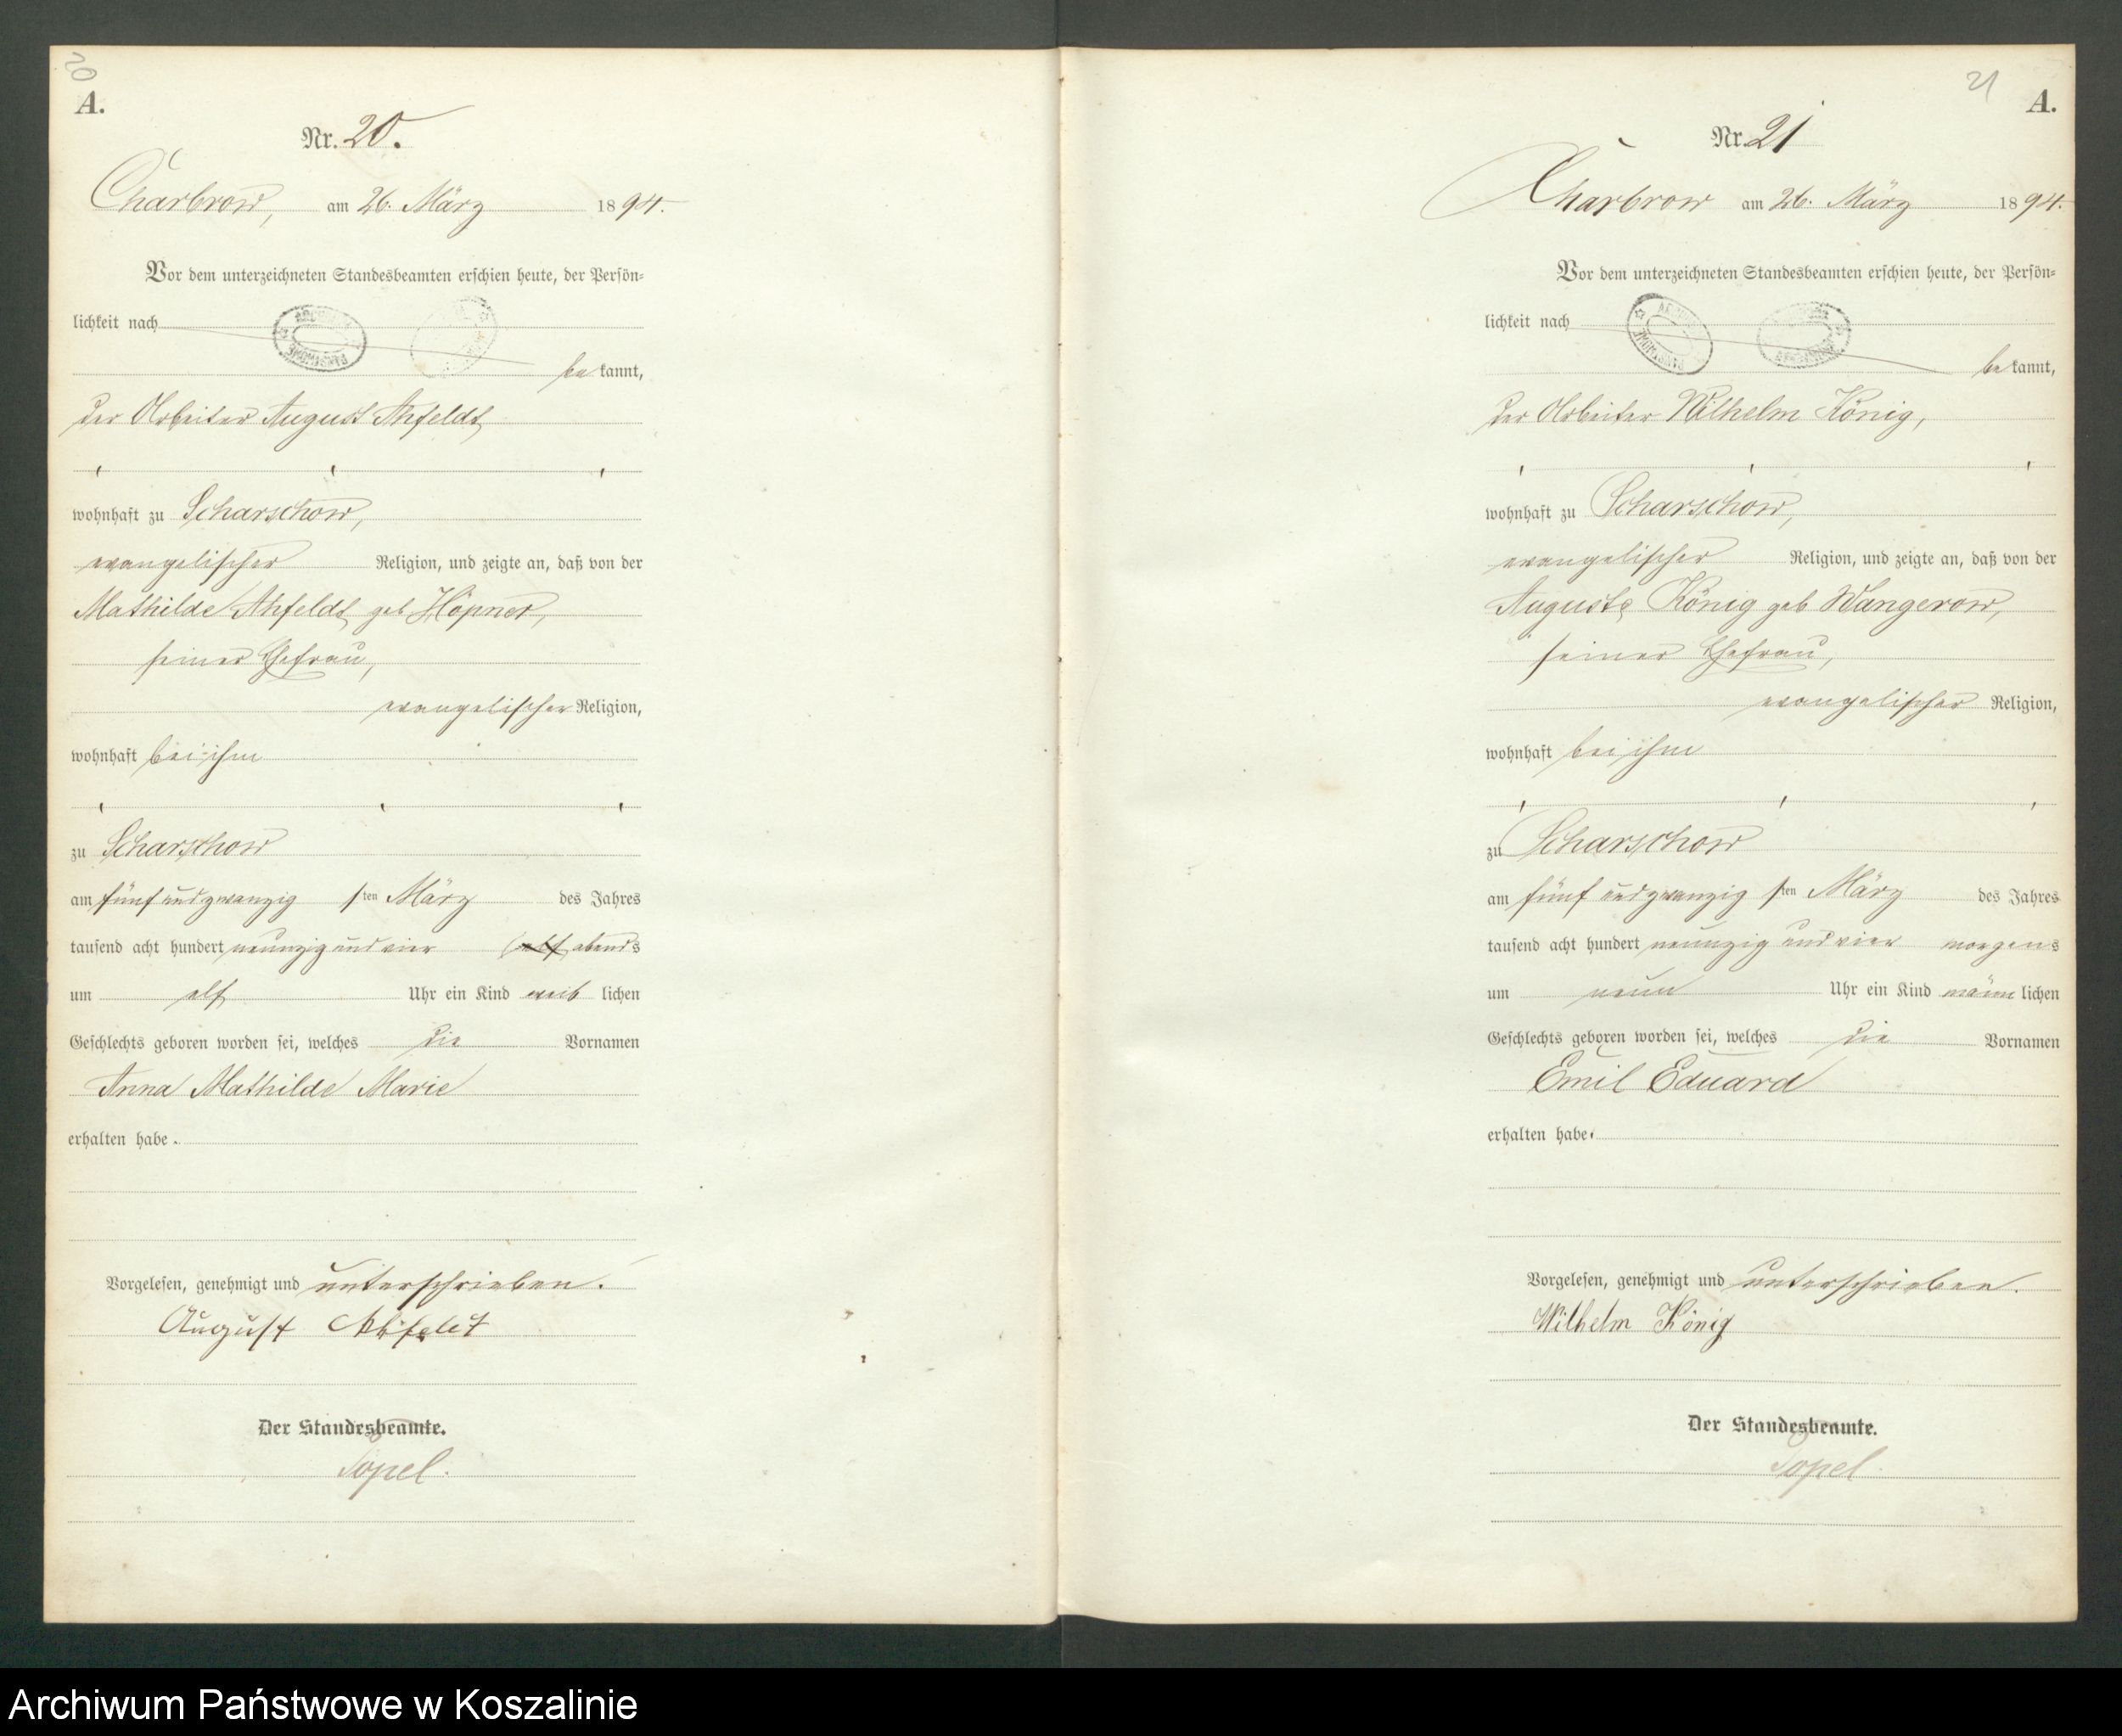 20
A.
Nr. 20.
Charbrow, am 26. März 1894.
Vor dem unterzeichneten Standesbeamten erschien heute, der Persön-
lichkeit nach
bekannt,
der Arbeiter August Ahfeldt
wohnhaft zu Scharschow,
evangelischer Religion, und zeigte an, daß von der
Mathilde Ahfeldt geb Höpner,
seiner Ehefrau,
evangelischer Religion,
wohnhaft bei ihm
zu Scharschow
am fünf und zwanzigsten März des Jahres
tausend acht hundert neunzig und vier elf abends
um elf Uhr ein Kind weiblichen
Geschlechts geboren worden sei, welches die Vornamen
Anna Mathilde Marie
erhalten habe.
Vorgelesen, genehmigt und unterschrieben.
August Ahfeldt
Der Standesbeamte.
Töpel.
21
A.
Nr. 21
Charbrow am 26. März 1894.
Vor dem unterzeichneten Standesbeamten erschien heute, der Persön-
lichkeit nach
bekannt,
der Arbeiter Wilhelm König,
wohnhaft zu Scharschow,
evangelischer Religion, und zeigte an, daß von der
Auguste König geb Wangerow,
seiner Ehefrau,
evangelischer Religion,
wohnhaft bei ihm
zu Scharschow
am fünf und zwanzigsten März des Jahres
tausend acht hundert neunzig und vier morgens
um neun Uhr ein Kind männlichen
Geschlechts geboren worden sei, welches die Vornamen
Emil Eduard
erhalten habe.
Vorgelesen, genehmigt und unterschrieben.
Wilhelm König
Der Standesbeamte.
Töpel.
Archiwum Państwowe w Koszalinie